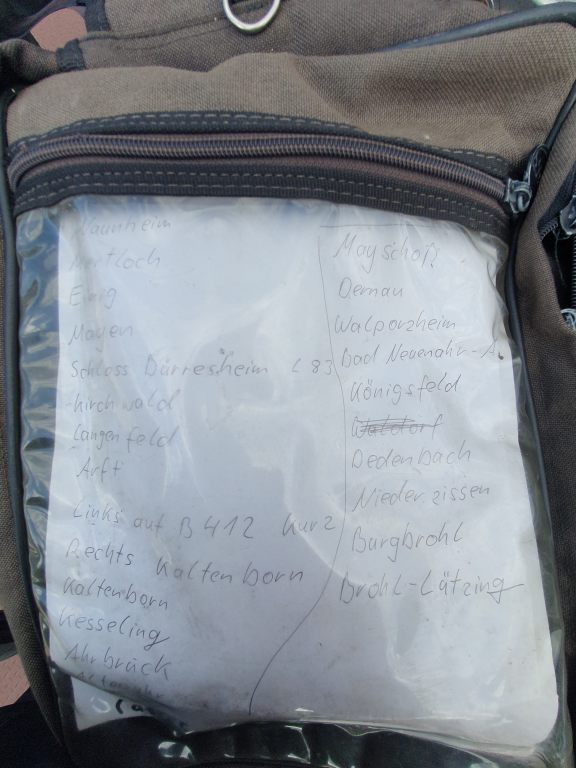 Naunheim
Mertloch
Einig
Mayen
Schloss Bürresheim L 83
Kirchwald
Langenfeld
Arft
Links auf B 412 Kurz
Rechts Kaltenborn
Kaltenborn
Kesseling
Ahrbrück
Altenahr
Mayschoß
Dernau
Walporzheim
bad Neuenahr-A.
Königsfeld
Waldorf
Dedenbach
Niederzissen
Burgbrohl
Brohl-Lützing